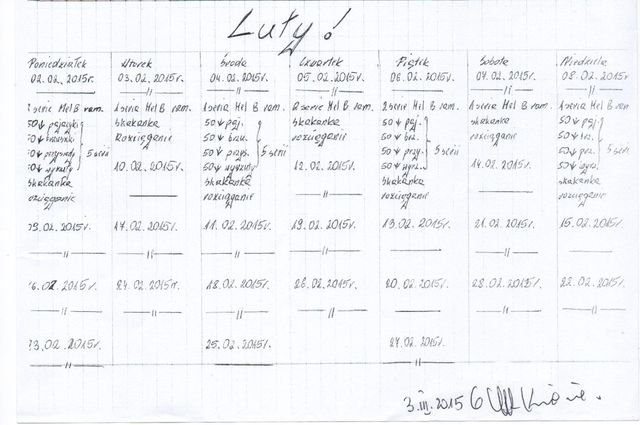 Luty!
Poniedziałek Wtorek Środa Czwartek Piątek Sobota Niedziela
02.02.2015r. 03.02.2015r. 04.02.2015r. 05.02.2015r. 06.02.2015r. 07.02.2015r. 08.02.2015r.
1 serie Hel B ram. 1 seria Hel B ram. 1 seria Hel B ram. 2 serie Hel B ram. 2 serie Hel B ram. 1 seria Hel B ram. 1 seria Hel B ram.
50↓ pajacyki skakanka 50↓ paj. skakanka 50↓ paj. skakanka 50↓ paj.
50↓ brzuszki rozciąganie 50↓ brzu. rozciąganie 50↓ brz. rozciąganie 50↓ brz.
50↓ przysiady 5 serii 50↓ przys. 5 serii 50↓ przy. 5 serii 50↓ prz. 5 serii
50↓ wyrzuty 10.02.2015r. 50↓ wyrzuty 12.02.2015r. 50↓ wyrz. 14.02.2015r. 50↓ wyrz.
skakanka skakanka skakanka skakanka
rozciąganie rozciąganie rozciąganie rozciąganie
09.02.2015r. 17.02.2015r. 11.02.2015r. 19.02.2015r. 13.02.2015r. 21.02.2015r. 15.02.2015r.
16.02.2015r. 24.02.2015r. 18.02.2015r. 26.02.2015r. 20.02.2015r. 28.02.2015r. 22.02.2015r.
23.02.2015r. 25.02.2015r. 27.02.2015r.
3.III.2015